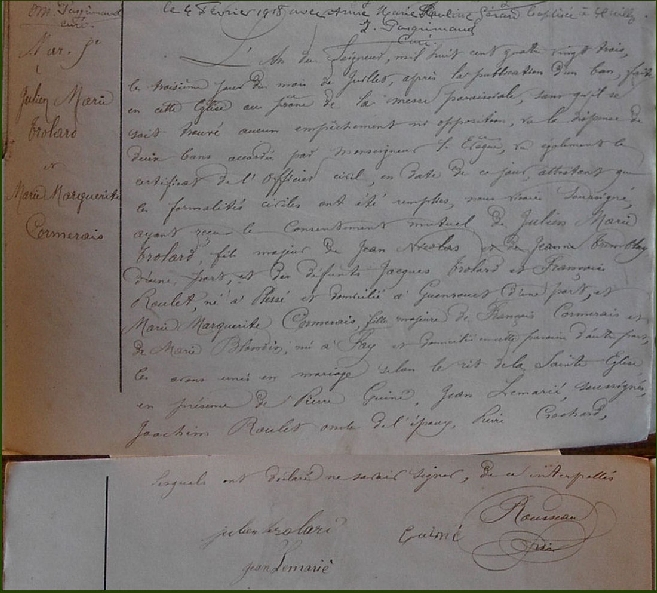 le 4 Février 1918 avec Anne Marie Gérard baptisée à
curé
curé
Mar. St
Julien Marie
Erolard
et
Marie Marguerite
Cormerais
L'An du Seigneur, mil huit cent quatre vingt trois,
le troisième jour du mois de juillet, après la publication d'un ban, faite
en cette Eglise au prône de la messe paroissiale, sans qu'il se
soit trouvé aucun empêchement ni opposition, vu la dispense de
deux bans accordée par Monseigneur l'Evêque, vu également le
certificat de l'Officier civil, en date de ce jour, attestant que
les formalités civiles ont été remplies, nous vicaire soussigné,
ayant reçu le consentement mutuel de Julien Marie
Erolard, fils majeur de Jean Nicolas et de Jeanne Tremblay
d'une part, et des défunts Jacques Erolard et Françoise
Roulet, né à Plessé et domicilié à Guenrouet d'une part, et
Marie Marguerite Cormerais, fille majeure de François Cormerais et
de Marie Blandin, née à Fay et domiciliée cette paroisse d'autre part,
les avons unis en mariage selon le rit de la Sainte Eglise
en présence de Pierre Guiné, Jean Lemarié, soussignés,
Joachim Roulet oncle de l'époux, Pierre Crochard,
lesquels ont déclaré ne savoir signer, de ce interpellés
julien Erolard Guiné Rousseau
jean Lemarié